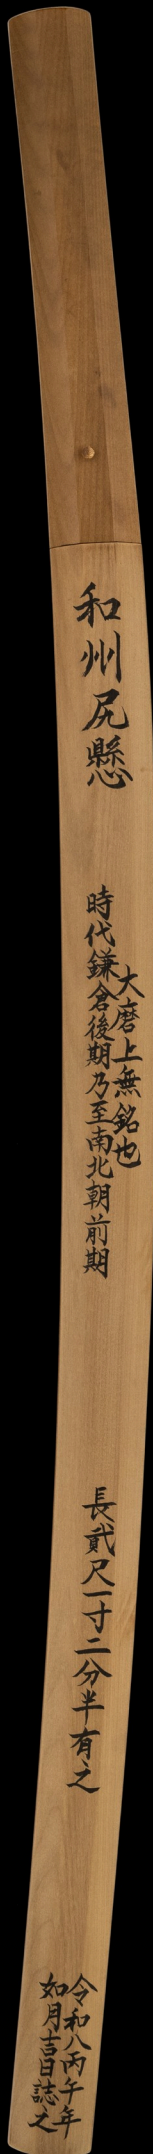 和州尻懸
大磨上無銘也
時代鎌倉後期乃至南北朝前期
長貳尺一寸二分半有之
令和八丙午年
如月吉日誌之